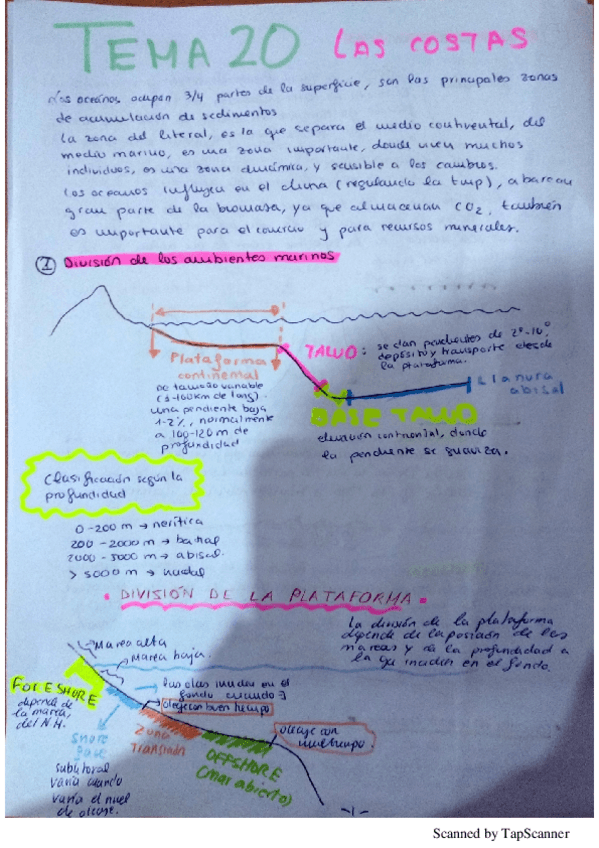 TEMA 20 LAS COSTAS
Los oceános ocupan 3/4 partes de la superficie, son las principales zonas
de acumulación de sedimentos
La zona del literal, es la que separa el medio continental, del
medio marino, es una zona importante, donde viven muchos
individuos, es una zona dinámica, y sensible a los cambios.
Los oceanos influyen en el clima (regulando la temp), abarcan
gran parte de la biomasa, ya que almacenan CO2, también
es importante para el comercio y para recursos minerales.
1 División de los ambientes marinos
Plataforma
continental
de tamaño variable
una pendiente baja
1-2%, normalmente
a 100-120m de
profundidad
TALUD: se dan pendientes de 2º-10º
deposito y transporte desde
la plataforma.
Llanura
abisal
BASE TALUD
elevación continental, donde
la pendiente se suaviza.
Clasificación según la
profundidad
0-200 m → nerítica
200-2000 m → batial
2000-5000 m → abisal.
> 5000 m → hadal
DIVISIÓN DE LA PLATAFORMA
La división de la plataforma
depende de la posición de las
mareas y de la profundidad a
la que inciden en el fondo.
Marea alta
Marea baja
FORESHORE
depende de
la marea,
del N.M.
las olas inciden en el
fondo cuando
oleaje con buen tiempo
oleaje con
mal tiempo.
Shore
face
sublitoral
varía cuando
varía el nivel
de oleaje.
Zona
Transición
OFFSHORE
(Mar abierto)
-1-
Scanned by TapScanner